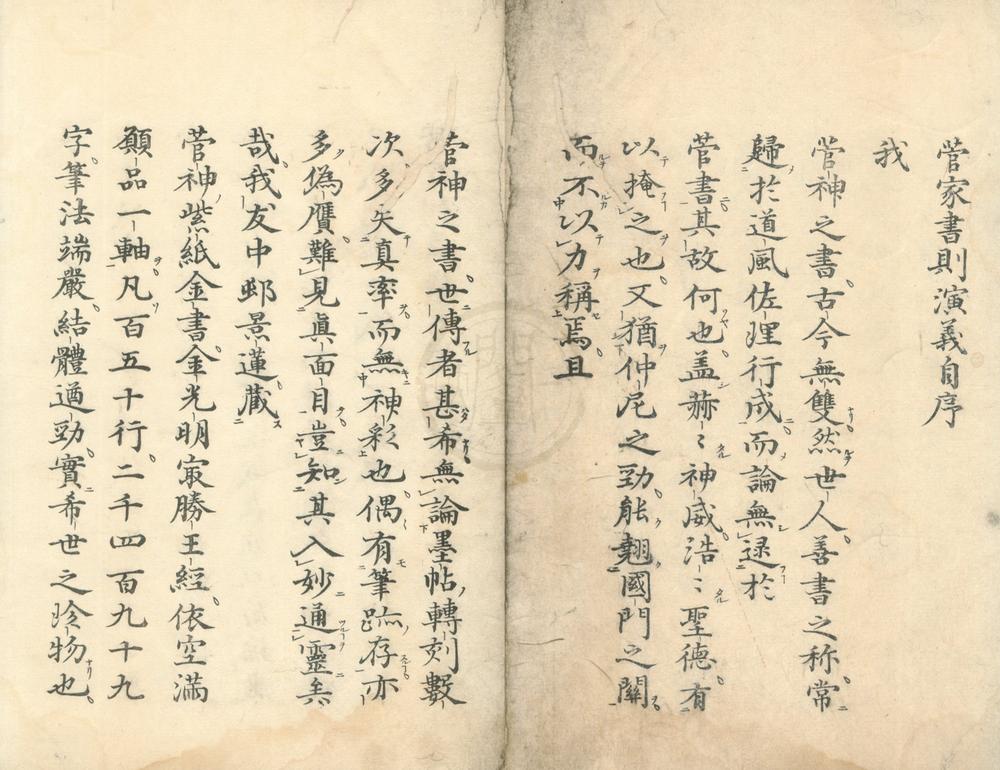 菅家書則演義自序
我
菅神之書古今無雙然世人善書之称常
歸於道風佐理行成而論無逯於
菅書其故何也盖赫〻神威浩〻聖德有
以掩之也又猶仲尼之勁能翹國門之關
而不以力稱焉且
菅神之書世傳者甚希無論墨帖轉刻數
次多失真率而無神彩也偶有筆跡存亦
多偽贋難見真面目豈知其入妙通靈矣
哉我友中邨景蓮蔵
菅神紫紙金書金光明㝡勝王經依空滿
願品一軸凡百五十行二千四百九十九
字筆法端嚴結體遒勁實希世之珍物也